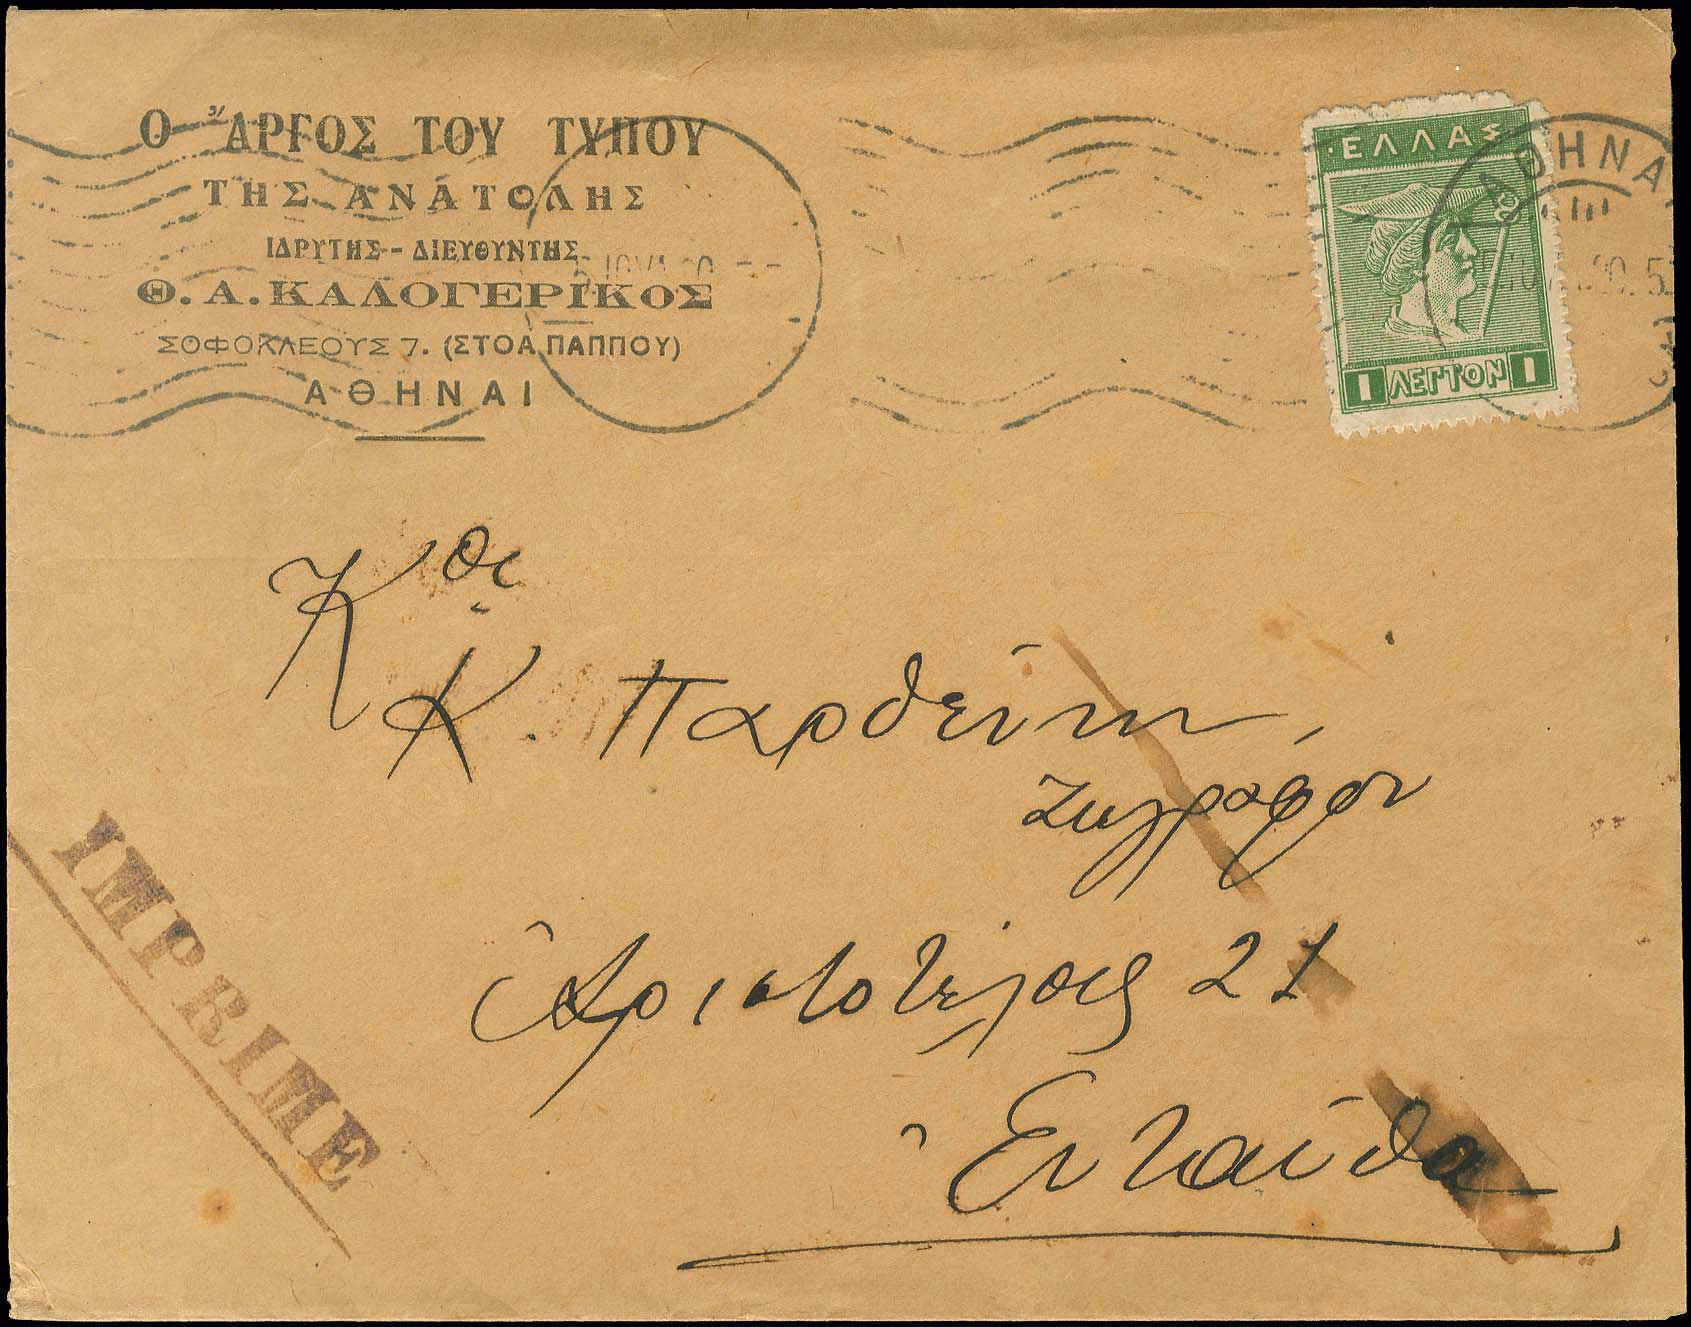 Ο Ἄργος ΤΟΥ ΤΥΠΟΥ
ΤΗΣ ΑΝΑΤΟΛΗΣ
ΙΔΡΥΤΗΣ - ΔΙΕΥΘΥΝΤΗΣ
Θ. Α. ΚΑΛΟΓΕΡΙΚΟΣ
ΣΟΦΟΚΛΕΟΥΣ 7. (ΣΤΟΑ ΠΑΠΠΟΥ)
ΑΘΗΝΑΙ
ΕΛΛΑΣ
1 ΛΕΠΤΟΝ 1
ΑΘΗΝΑΙ
Κον
Κ. Παρθένην,
Ζωγράφον
Ἀριστοτέλους 21
Ἐνταύθα
IMPRIME